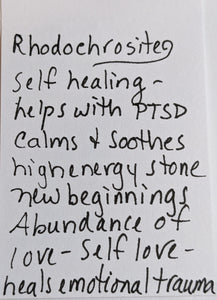 Rhodochrosite
self healing -
helps with PTSD
Calms & Soothes
high energy stone
new beginnings
Abundance of
love - Self love -
heals emotional trauma